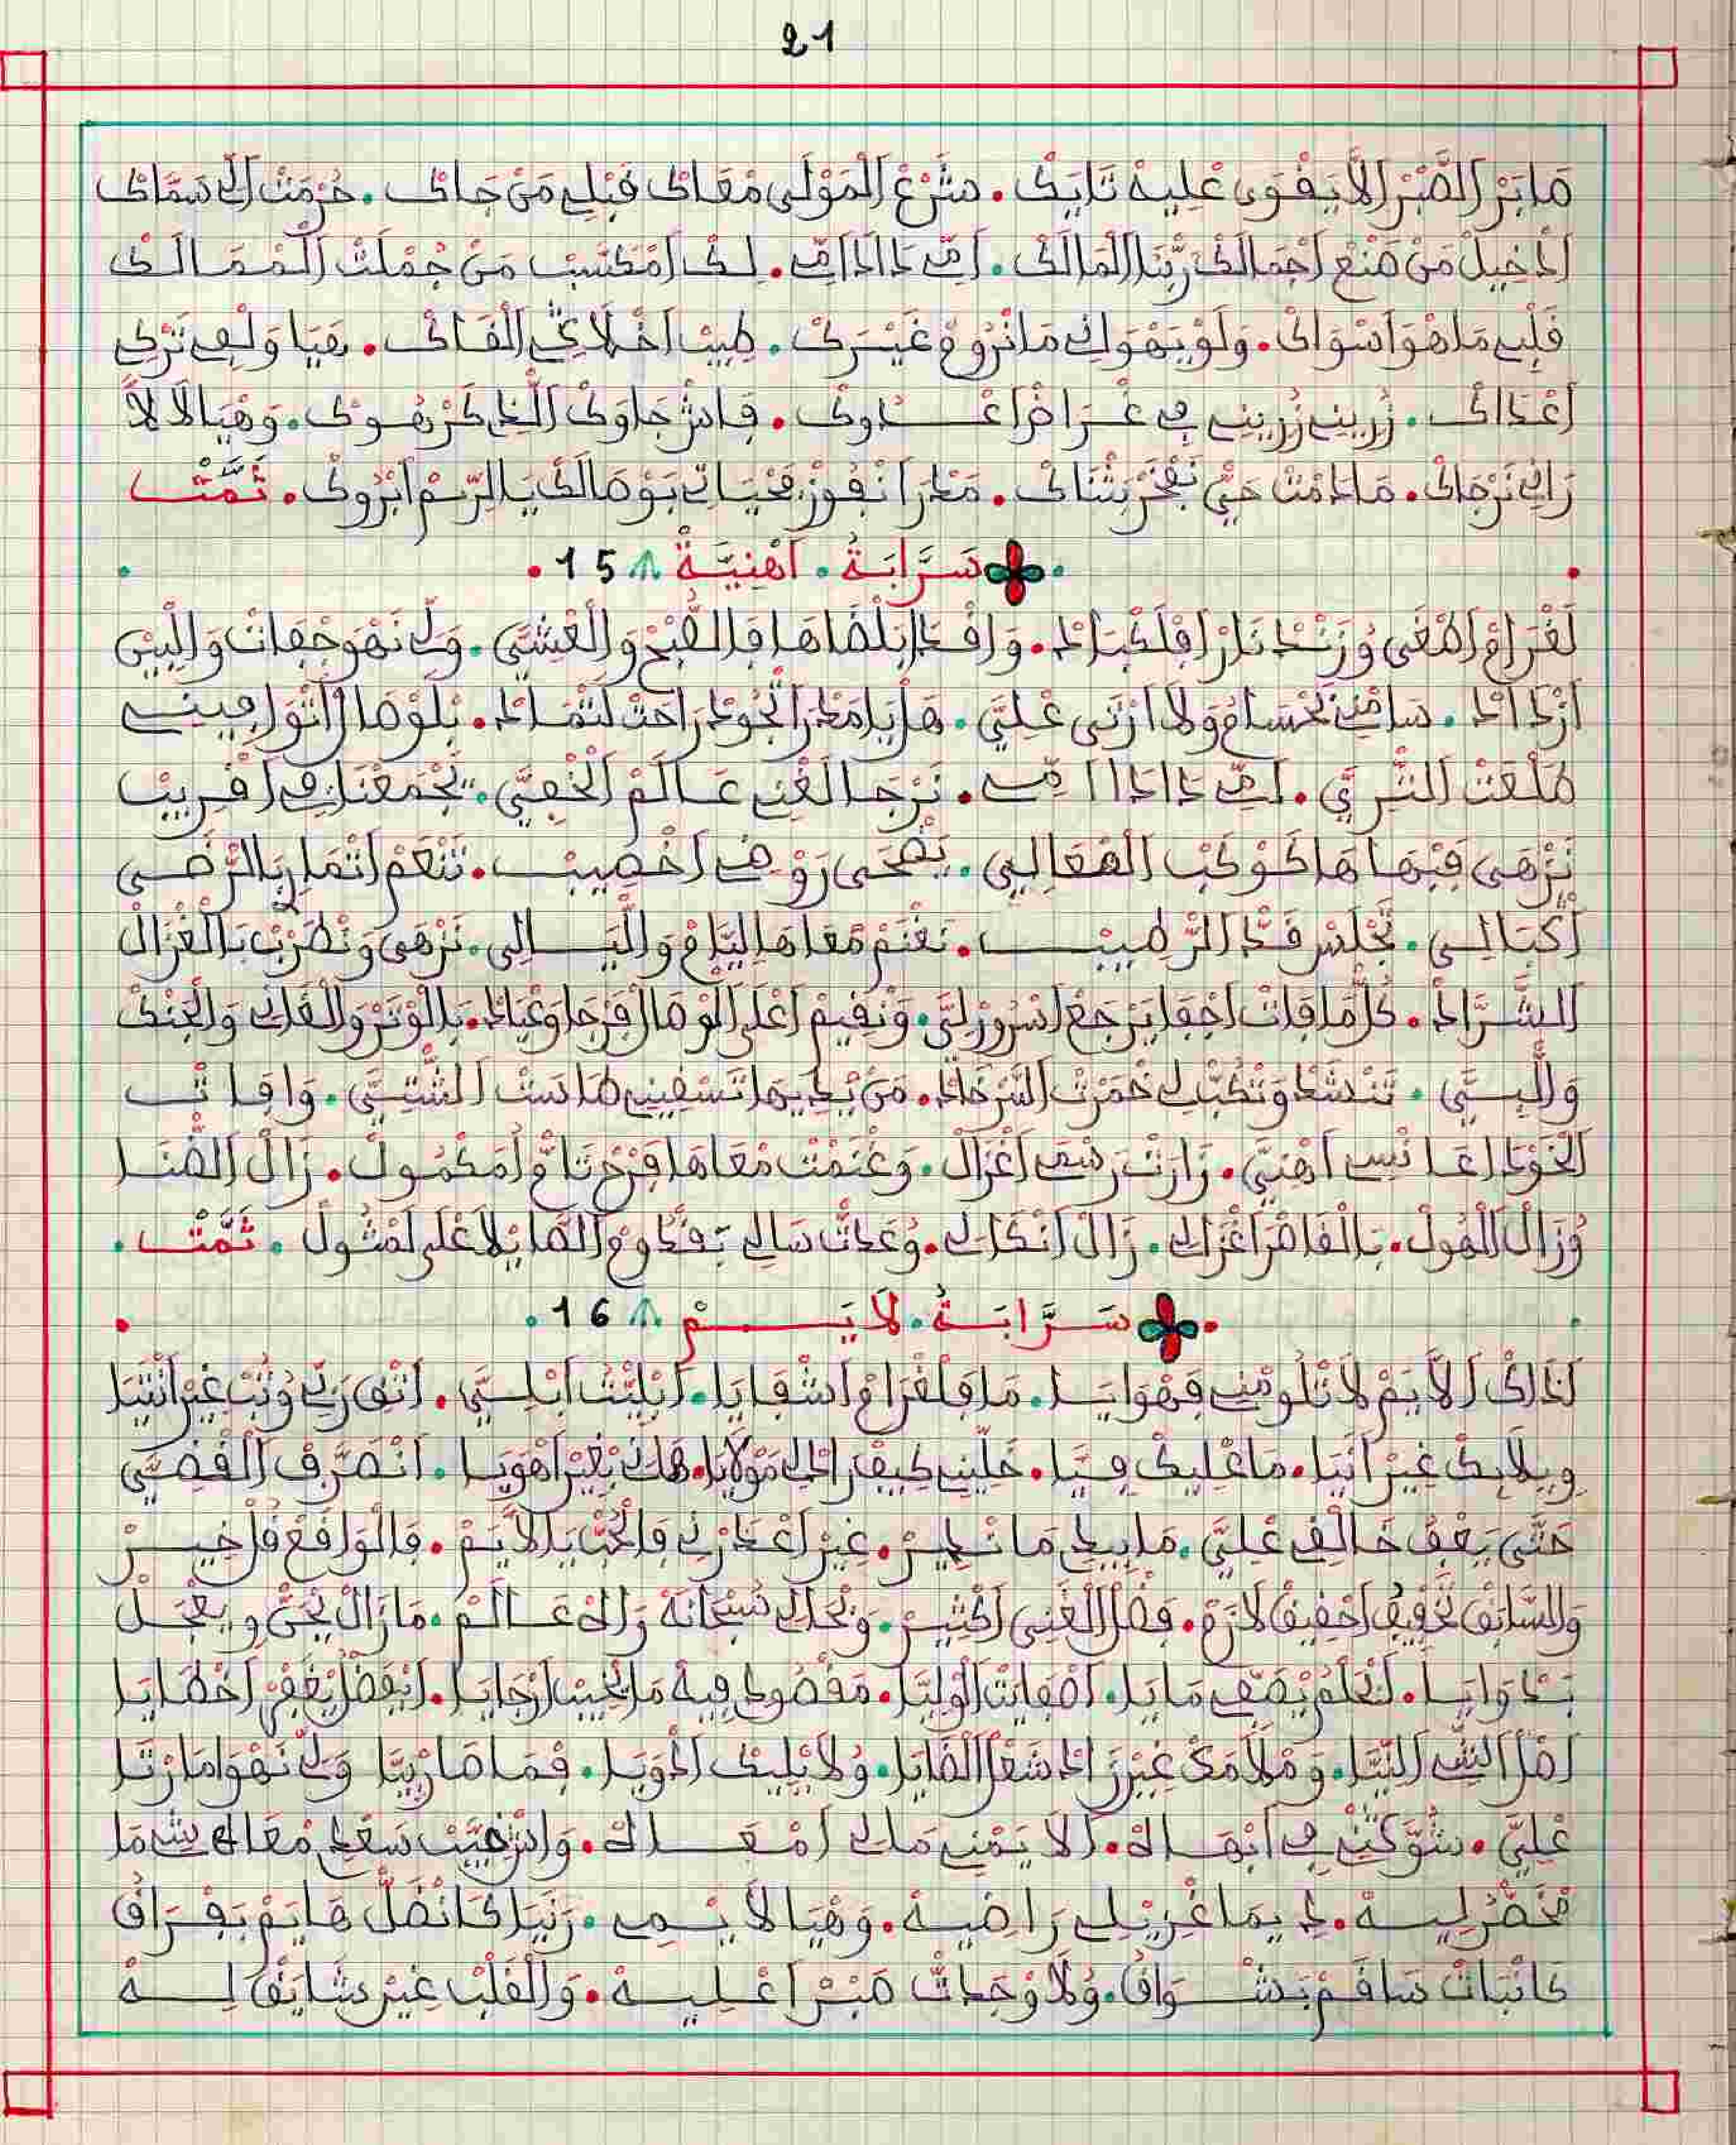 21
مَابَرْ الصَّبْر الاَّ يَقْوَى عْلِيهْ تَايَكْ. شَرْعْ الْمَوْلَى مْعَاكْ قَبْلِي مَنْ جَاكْ. حُرْمَتْ الِّي سَمَّاكْ
ادْخِيلْ مَنْ صَنْعْ اجْمَالَكْ رَبَّنَا الْمَالَكْ. امِّي دَادَا امِّي. لِكْ امْكَسَّبْ مَنْ جُمْلَتْ الْمْمَالَكْ
قَلْبِي مَاهْوَ اسْوَاكْ. وَلَوْ يَهْوَاكْ مَا نْرُومْ غَيْرَكْ. طِيبْ اخْلاَقِي الْقَاكْ. هَيَا وَلْفِي تَرْكِي
اعْدَاكْ. زُرِينِي زُرِينِي فِي غْرَاضْ اعْدُوكْ. فَاشْ جَاوَكْ الِّي كَرْهُوكْ. وَهْيَا لاَلاَّ
رَانِي نَرْجَاكْ. مَادَمْتْ حَيّْ نَفْخَرْ بَثْنَاكْ. مَدْرَا نْفُوزْ فَحْيَاتِي بَوْصَالَكْ يَا الرِّيمْ ابْرُوكْ. تَمَّتْ
سَرَّابَةُ. اهْنِيَّةْ 15.
لَغْرَامْ اصْعَى وُزَنْدْ نَارْ افْلَكْبَادْ. وَافْدَا بَلْضَاهَا فَالصّْبَحْ وَالْعْشَيّ. وَلِّي نَهْوَ جْفَاتْ وَالْبِينْ
ازْدَادْ. سَامْنِي نَحْسَامْ وَلاَ ارْتَى عْلِيَّ. هَلْ يَا مَدْرَا الْجُودْ رَاحَتْ لَتْمَادْ. بَلَوْصَالْ اتْوَافِينِي
طَلْعَتْ التّْرِيَّ. امِّي دَادَا امِّي. نَرْجَا الَغْنِي عَالَمْ الْخْفِيَّ. يَجْمَعْنَا فِي اقْرِيبْ
نَزْهَى فَبْهَاهَا كَوْكَبْ الْمْعَالِي. يَضْحَى رَوْضِي اخْصِيبْ. تَنْعَمْ اتْمَارْ بَالرّْضَى
اكْبَالِي. نَجْلَسْ قَدّْ الرّْطِيبْ. نَغْنَمْ مْعَاهَا لِيَّامْ وَاللّْيَالِي. نَزْهَى وَنْطْرَبْ بَالْغْزَالْ
الشَّرَّادْ. كُلْ مَا فَاتْ اجْفَا يَرْجَعْ اسْرُورْ لِيَّ. وَنْقِيمْ اعْلَى الْوْصَالْ فَرْجَا وَعْيَادْ. بَالْوْتَرْ وَالْفَاكْ وَالْجَنْكْ
وَاللّْيَسِّيّ. تَنْشَدْ وَتْكَبّْ لِي خَمْرَتْ السَّرْخَادْ. مَنْ يَدِيهَا تَسْقِينِي طَاسَتْ الشّْتِيّ. وَافَاتْ
الْخَوْدَا عَانْسِي اهْنِيَّ. زَارَتْ رَسْمِي اغْزَالْ. وَغْنَمْتْ مْعَاهَا فَرْحْ تَامّْ وُمَكْمُولْ. زَالْ الضّْنَا
وُزَالْ الْهُولْ. بَالْقَاصْرَ اغْزَالِي. زَالْ انْكَالِي. وُعَدْتْ سَالِي بَقْدُومْ الصَّايْلاَ عْلَى لَمْتُولْ. تَمَّتْ.
سَرَّابَةُ. لاَيَمْ 16.
اذَاكْ الاَّيَمْ لاَ تْلُومْنِي فَهْوَايَا. مَا فَلَغْرَامْ اشْفَايَا. ابْلِيتْ ابْلِيَّ. اتْقْ رَبِّي وُتُبْ غِيرْ انْتَيَا
وِيلاَ بِكْ غِيرْ انَيَا. مَا عْلِيكْ فِيَّا. خَلِّينِي كِيفْ رَادْ لِي مَوْلاَيَا. هَاكْ بَغِيرْ اهْوَيَا. انْصَرَّفْ الْقْضِيَّ
حَتَّى يَعْفُ خَالْقِي عْلِيَّ. مَا بِيدِي مَا نْدِيرْ. غِيرْ اعْدَرْنِي فَالْحُبّْ يَا الاَّيَمْ. فَالْوَاقَعْ فَلْخِيرْ
وَالسَّابَقْ تَحْقِيقْ احْقِيقْ لاَزَمْ. فَضْلْ الْغْنِي اكْثِيرْ. وَحْدُ سُبْحَانَهْ رَاهْ عَالَمْ. مَازَالْ يْحَنّْ وِيعْجَلْ
بَدْوَايَا. لَحْلُو يْصَفِّي مَايَا. اصْفَاتْ الَوْلِيَّا. مَقْصُودْ فِيهْ مَا يْخِيبْ ارْجَايَا. ايَفْضَلْ يَغْفَرْ اخْطَايَا
اصْلْ النّْسِي النِّيَّا. وَمْلاَمَكْ غِيرْ زَادْ شَعْلْ الْقَايَا. وُلاَ بْلِيكْ ادْوَيَا. فْمَا صَارْ بِيَّا وَلِّي نَهْوَ امَا رْتَا
عْلِيَّ. شَوَّكْنِي فِي ابْهَاهْ. الاَيَمْنِي مَالِي امْعَاهْ. وَاشْ غِيبْ سَعْدِي مْعَاهْ شِي مَا
مْحَضَّرْ لِيهْ. دِيمَا غْزِيلِي رَاضِيهْ. وَهْيَا لاَيْمِي. زَنْيَا كَانْضَلّْ هَايَمْ بَفْرَاقْ
كَانْبَاتْ سَاقَمْ بَشْوَاقْ. وُلاَ وْجَدْتْ صَبْرْ اعْلِيهْ. وَالْقَلْبْ غِيرْ شَايَقْ لِهْ